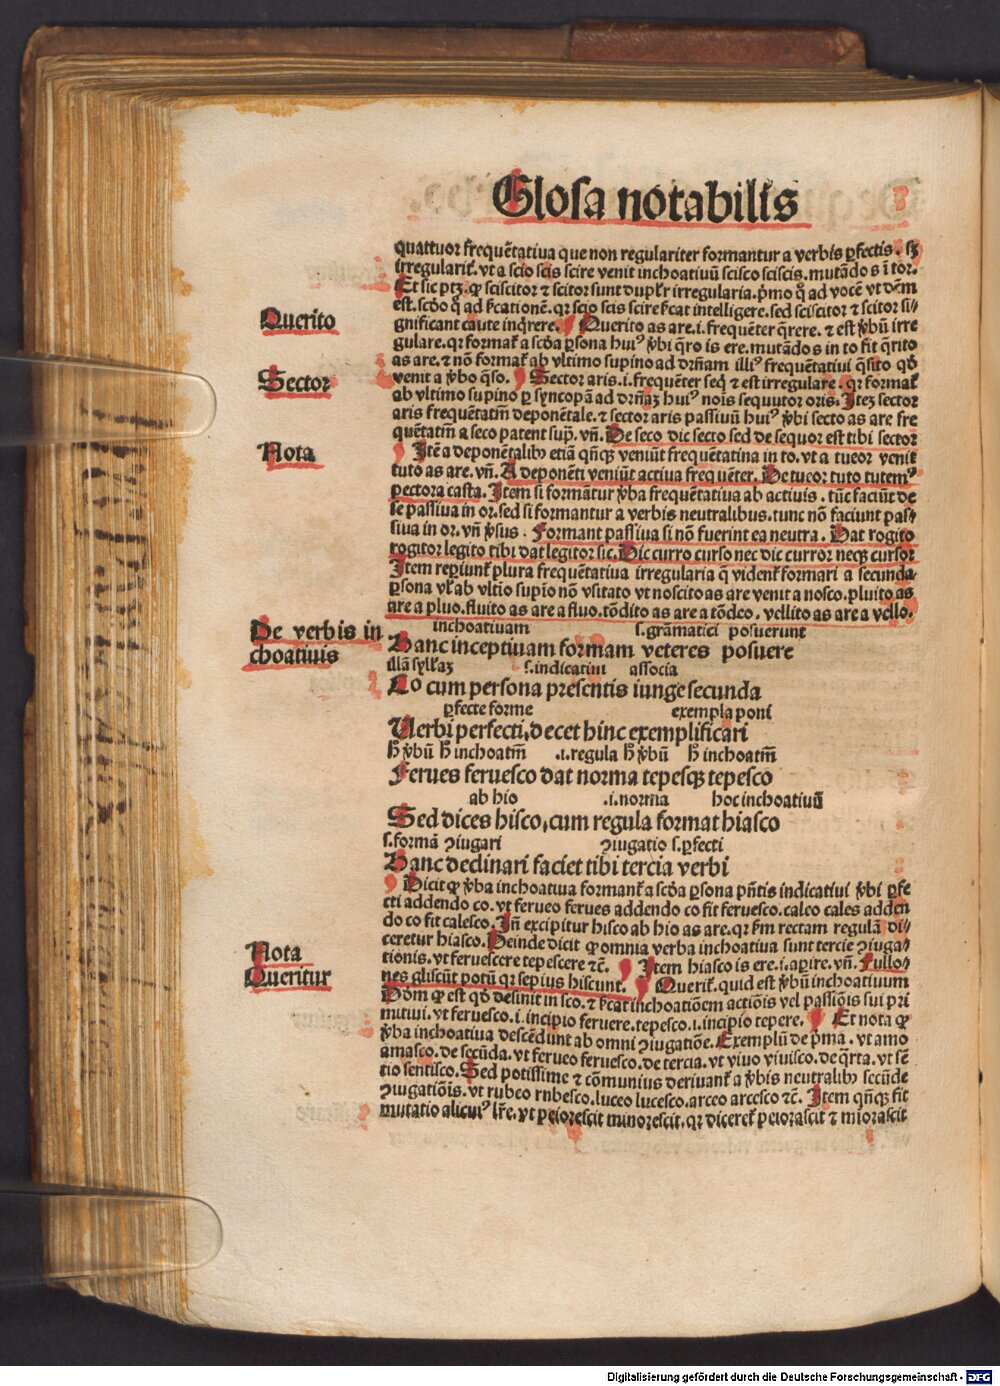 Glosa notabilis
quattuor frequẽtatiua que non regulariter formantur a verbis ꝑfectis. sꝫ
irregularit̃. vt a scio scis scire venit inchoatiuũ scisco sciscis. mutãdo s ĩ tor.
Et sic ptꝫ. ꝙ sciscitor ⁊ scitor sunt dupl̃r irregularia. p̃mo q̃ ad vocẽ vt dc̃m
est. scd̃o q̃ ad sc̃ationẽ. qꝛ scio scis scire sc̃at intelligere. sed sciscitor ⁊ scitor si⸗
gnificant caute inq̃rere. Querito as are .i. frequẽter q̃rere. ⁊ est v̾bũ irre
Querito
gulare. qꝛ format̃ a scd̃a ꝑsona huiꝰ v̾bi q̃ro is ere. mutãdo s in to fit q̃rito
as are. ⁊ nõ format̃ ab vltimo supino ad dr̃nam illiꝰ frequẽtatiui q̃sito qd̃
venit a v̾bo q̃so. Sector aris .i. frequẽter seq̃ ⁊ est irregulare. qꝛ format̃
Sector
ab vltimo supino ꝑ syncopã ad dr̃naꝫ huiꝰ nois sequutor oris. Iteꝫ sector
aris frequẽtatm̃ deponẽtale. ⁊ sector aris passiuũ huiꝰ v̾bi secto as are fre
quẽtatm̃ a seco patent sup̃. vñ. De seco dic secto sed de sequor est tibi sector
Itẽ a deponẽtalibꝫ etiã qñqꝫ veniũt frequẽtatiua in to. vt a tueor venit
Nota
tuto as are. vñ. A deponẽti veniũt actiua frequẽter. De tueor tuto tutemꝰ
pectora casta. Item si formãtur v̾ba frequẽtatiua ab actiuis. tũc faciũt de
se passiua in or. sed si formantur a verbis neutralibus. tunc nõ faciunt pas⸗
siua in or. vñ v̾sus. Formant passiua si nõ fuerint ea neutra. Dat rogito
rogitor legito tibi dat legitor sic. Dic curro curso nec dic curror neqꝫ cursor
Item reꝑiunt̃ plura frequẽtatiua irregularia q̃ vident̃ formari a secunda
ꝑsona vl̃ ab vltio supio nõ vsitato vt noscito as are venit a nosco. pluito as
are a pluo. fluito as are a fluo. tõdito as are a tõdeo. vellito as are a vello.
inchoatiuam s. grãmatici posuerunt
De verbis in
choatiuis
Hanc inceptiuam formam veteres posuere
illã syll̃aꝫ s. indicatiui associa
Co cum persona presentis iunge secunda
ꝑfecte forme exempla poni
Uerbi perfecti, decet hinc exemplificari
h̃ v̾bũ h̃ inchoatm̃ .i. regula h̃ v̾bũ h̃ inchoatm̃
Ferues feruesco dat norma tepesqꝫ tepesco
ab hio .i. norma hoc inchoatiuũ
Sed dices hisco, cum regula format hiasco
s. formã ꝯiugari ꝯiugatio s. ꝑfecti
Hanc declinari faciet tibi tercia verbi
Dicit ꝙ v̾ba inchoatiua formant̃ a scd̃a ꝑsona pñtis indicatiui v̾bi ꝑfe
cti addendo co. vt ferueo ferues addendo co fit feruesco. caleo cales adden
do co fit calesco. Iñ excipitur hisco ab hio as are. qꝛ fm̃ rectam regulã di⸗
ceretur hiasco. Deinde dicit ꝙ omnia verba inchoatiua sunt tercie ꝯiuga⸗
tionis. vt feruescere tepescere ⁊c̃. Item hiasco is ere .i. aꝑire. vñ. Fullo⸗
Nota
nes gliscũt potũ qꝛ sepius hiscunt. Querit̃. quid est v̾bũ inchoatiuum
Queritur
Dõm ꝙ est qd̃ desinit in sco. ⁊ sc̃at inchoatiõem actiõis vel passiõis sui pri
mitiui. vt feruesco .i. incipio feruere. tepesco .i. incipio tepere. Et nota ꝙ
v̾ba inchoatiua descẽdunt ab omni ꝯiugatiõe. Exemplũ de p̃ma. vt amo
amasco. de secũda. vt ferueo feruesco. de tercia. vt viuo viuisco. de q̃rta. vt sẽ
tio sentisco. Sed potissime ⁊ cõmunius deriuant̃ a v̾bis neutralibꝫ secũde
ꝯiugatiõis. vt rubeo rnbesco. luceo lucesco. arceo arcesco ⁊c̃. Item qñqꝫ fit
mutatio alicuiꝰ lr̃e. vt peiorescit minorescit. qꝛ diceret̃ peiorascit ⁊ miorascit
Digitalisierung gefördert durch die Deutsche Forschungsgemeinschaft - DFG